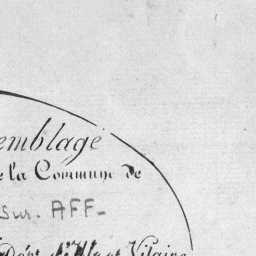 emblage
e la Commune de
sur. AFF-
Dépt. d'Ille et Vilaine